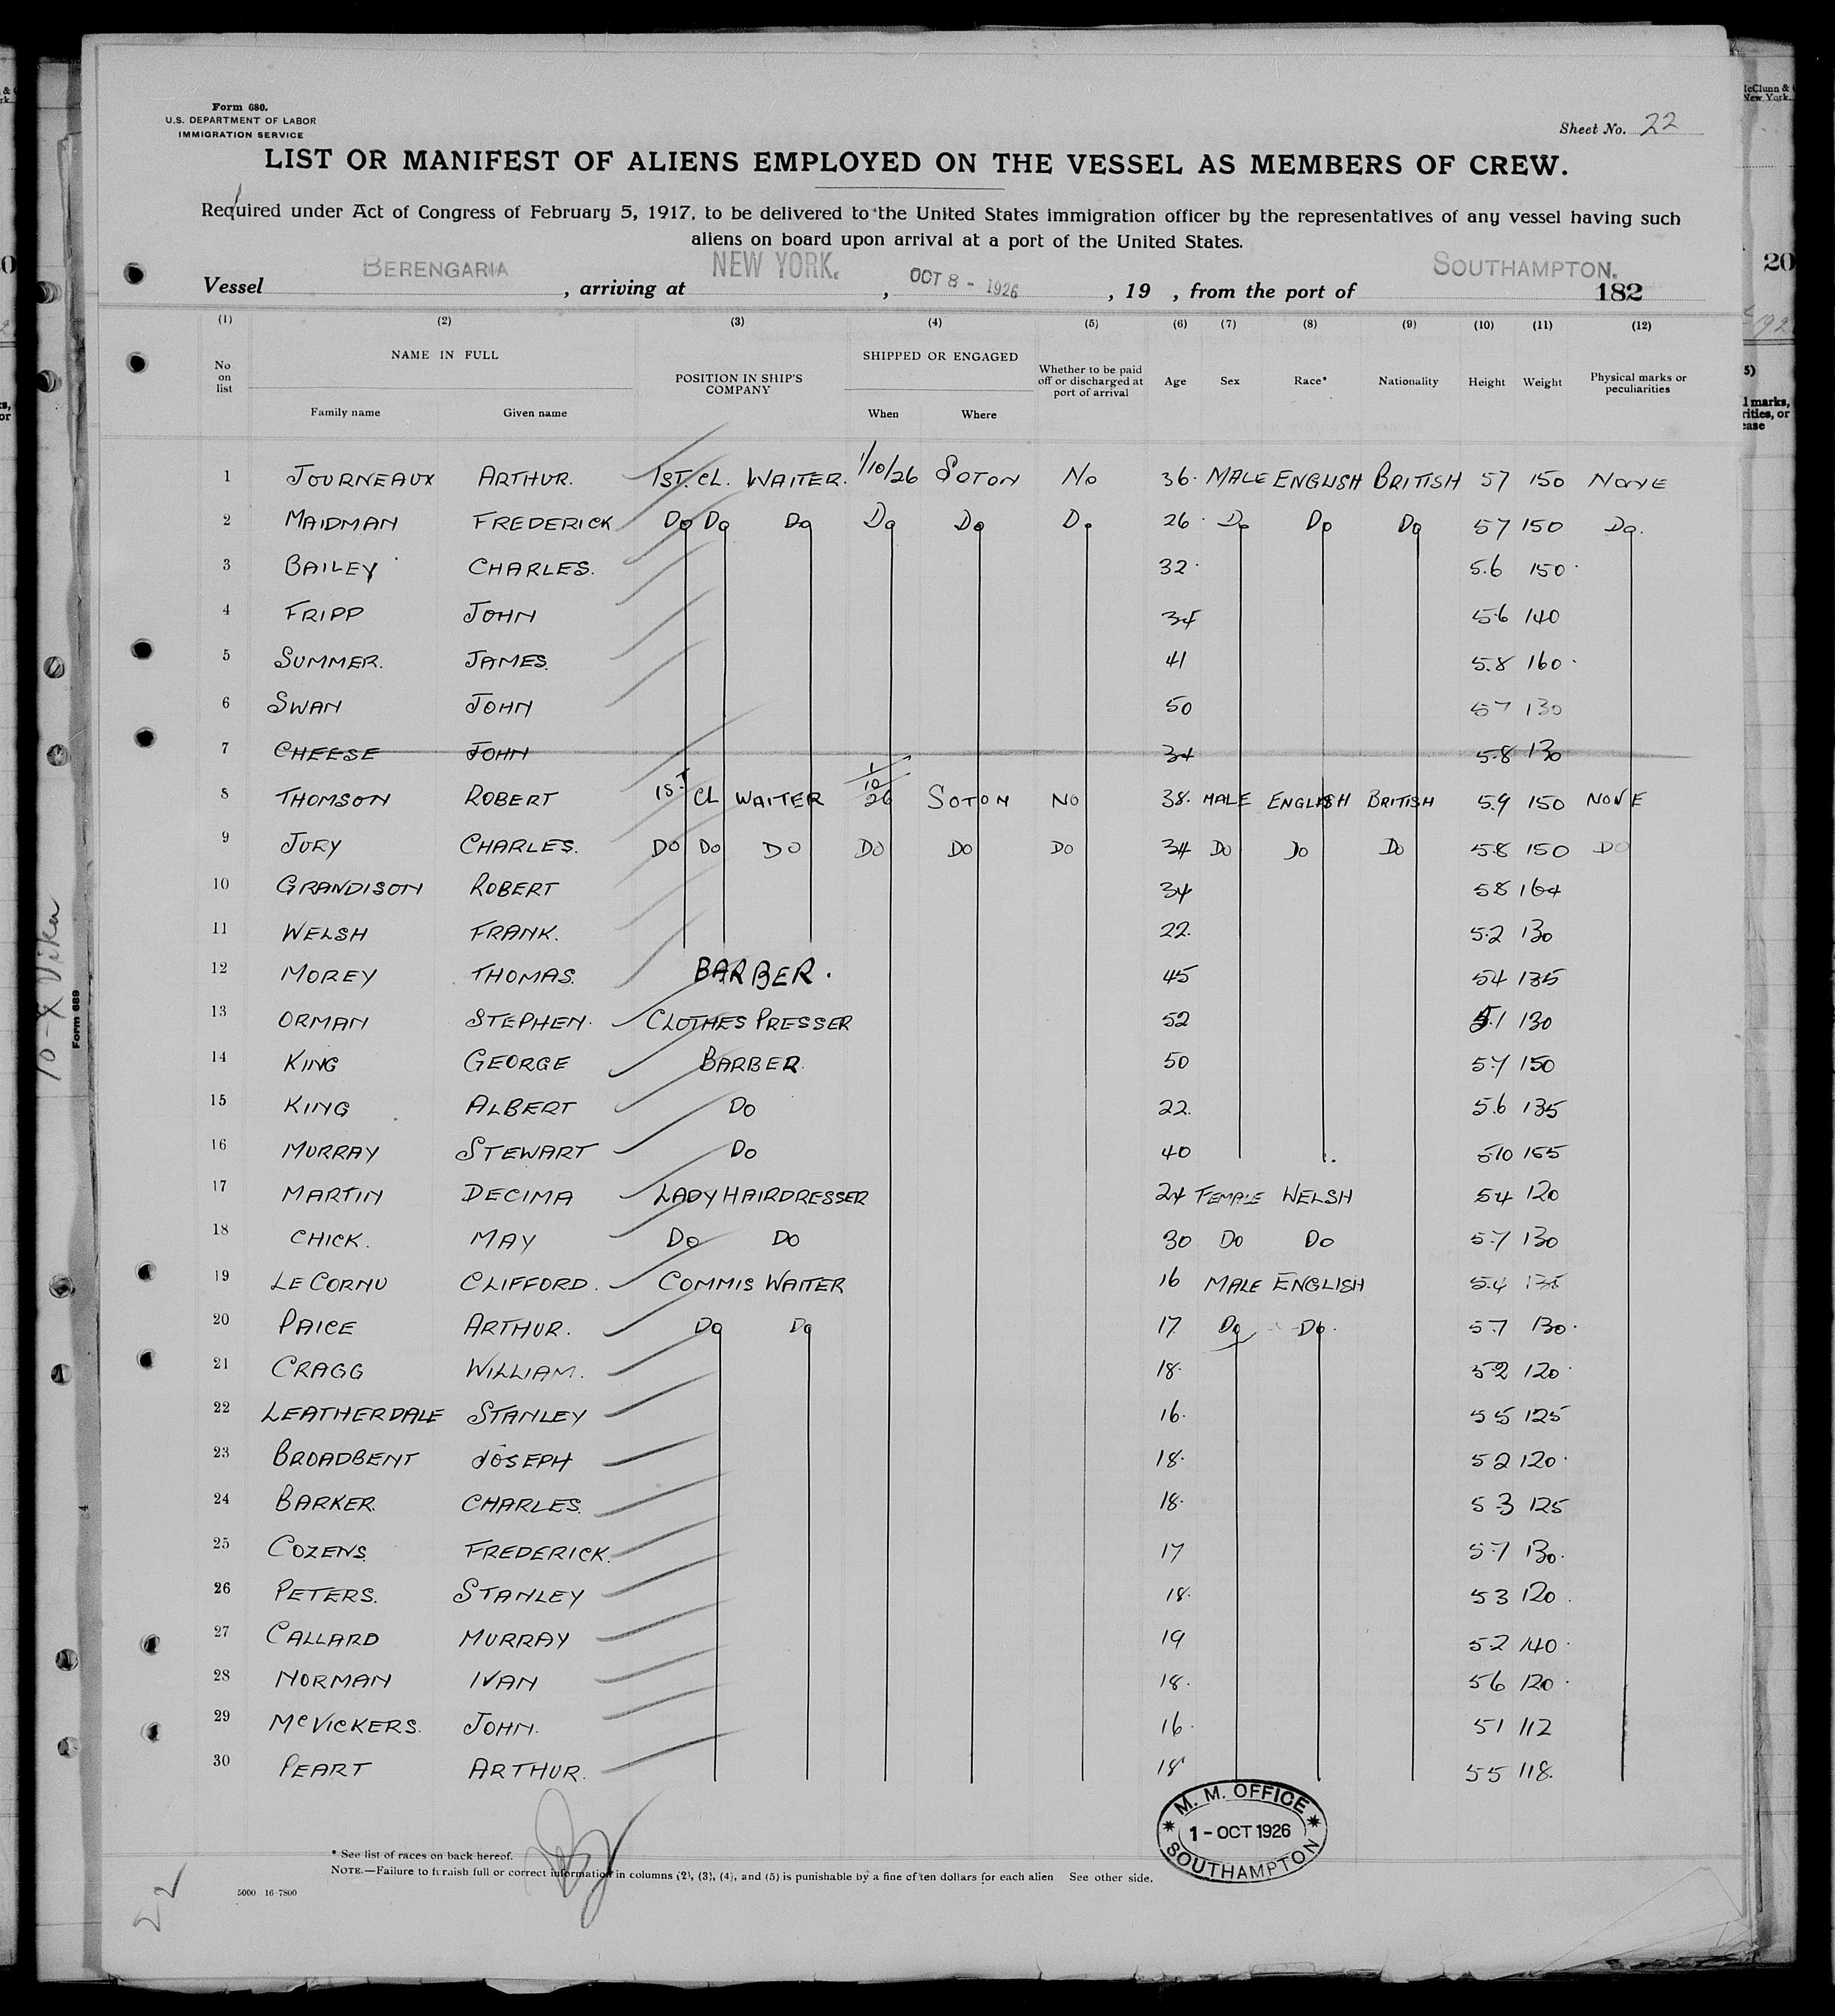 Form 680.
U.S. DEPARTMENT OF LABOR
IMMIGRATION SERVICE
Sheet No. 22
LIST OR MANIFEST OF ALIENS EMPLOYED ON THE VESSEL AS MEMBERS OF CREW.
Required under Act of Congress of February 5, 1917, to be delivered to the United States immigration officer by the representatives of any vessel having such
aliens on board upon arrival at a port of the United States.
Vessel BERENGARIA, arriving at NEW YORK., OCT 8 - 1926, 19 , from the port of SOUTHAMPTON. 182
(1) (2) (3) (4) (5) (6) (7) (8) (9) (10) (11) (12)
No on list NAME IN FULL Family name Given name POSITION IN SHIP'S COMPANY SHIPPED OR ENGAGED When Where Whether to be paid off or discharged at port of arrival Age Sex Race* Nationality Height Weight Physical marks or peculiarities
1 JOURNEAUX ARTHUR. 1ST. CL. WAITER. 1/10/26 SOTON No 36. MALE ENGLISH BRITISH 57 150 NONE
2 MAIDMAN FREDERICK Do Do Do Do Do Do 26 Do Do Do 57 150 Do.
3 BAILEY CHARLES. 32 5.6 150
4 FRIPP JOHN 34 5.6 140
5 SUMMER. JAMES. 41 5.8 160
6 SWAN JOHN 50 57 130
7 CHEESE JOHN 34 5.8 130
8 THOMSON ROBERT 1ST CL WAITER 1/10/26 SOTON NO 38. MALE ENGLISH BRITISH 5.9 150 NONE
9 JURY CHARLES. DO DO DO DO DO DO 34 DO DO DO 5.8 150 DO
10 GRANDISON ROBERT 34 58 164
11 WELSH FRANK. 22. 5.2 130
12 MOREY THOMAS. BARBER. 45 54 135
13 ORMAN STEPHEN. CLOTHES PRESSER 52 5.1 130
14 KING GEORGE BARBER. 50 5.7 150
15 KING ALBERT DO 22. 5.6 135
16 MURRAY STEWART DO 40 5.10 155
17 MARTIN DECIMA LADY HAIRDRESSER 24 FEMALE WELSH 54 120
18 CHICK. MAY DO DO 30 DO DO 5.7 130
19 LE CORNU CLIFFORD. COMMIS WAITER 16 MALE ENGLISH 5.4
20 PAICE ARTHUR. Do Do 17 Do Do. 57 130.
21 CRAGG WILLIAM. 18. 52 120
22 LEATHERDALE STANLEY 16. 55 125
23 BROADBENT JOSEPH 18. 52 120
24 BARKER. CHARLES. 18. 53 125
25 COZENS FREDERICK. 17 57 130.
26 PETERS. STANLEY 18. 53 120
27 CALLARD MURRAY 19 52 140
28 NORMAN IVAN 18. 56 120
29 McVICKERS. JOHN. 16. 51 112
30 PEART ARTHUR. 18 55 118.
M. M. OFFICE
1 - OCT 1926
SOUTHAMPTON
* See list of races on back hereof.
NOTE.—Failure to furnish full or correct information in columns (2), (3), (4), and (5) is punishable by a fine of ten dollars for each alien See other side.
5000 16-7800
22
Form 689
20